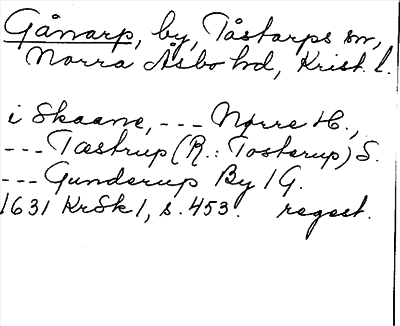 Gånarp, by, Tåstarps sn,
Norra Åsbo hd, Krist. l.
i Skaane, --- Nørre H.,
--- Tæstrup (R.: Tosterup) S.
--- Gunderup By 1 G.
1631 KrSk 1, s. 453. regest.